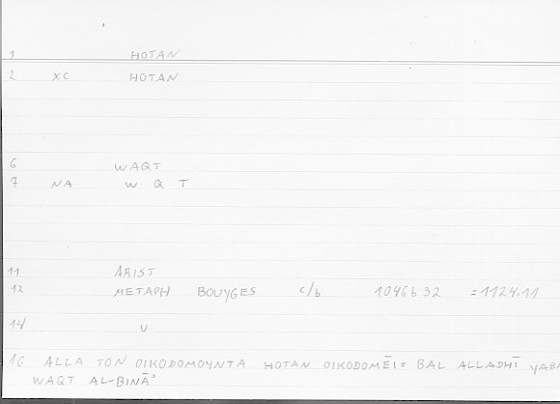 1 HOTAN
2 XC HOTAN
6 WAQT
7 NA W Q T
11 ARIST
12 METAPH BOUYGES c/b 1046b32 =1124.11
14 U
16 ALLA TON OIKODOMOYNTA HOTAN OIKODOMĒI= BAL ALLADHĪ
WAQT AL-BINĀʾ